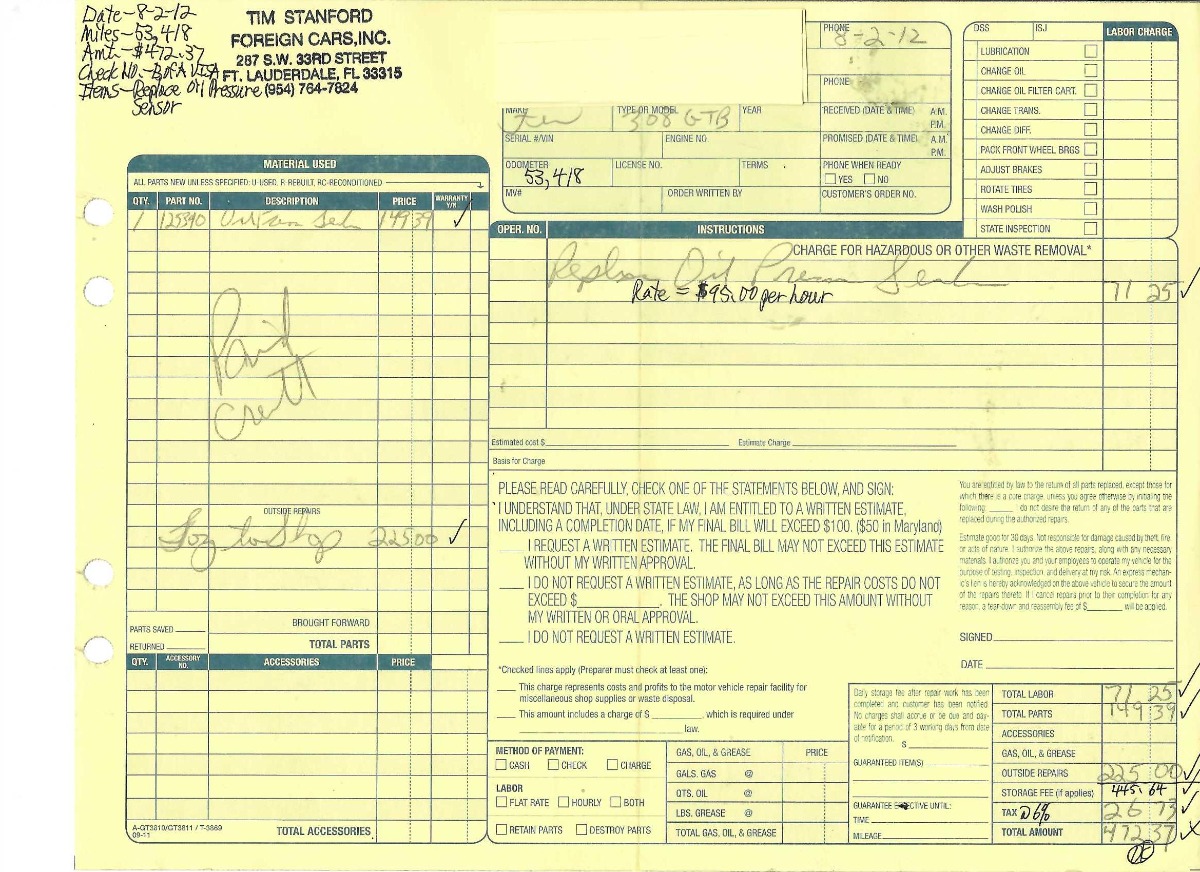 Date-8-2-12
Miles-53,418
Amt-$472.37
Check No.-BofA VISA
Items-Replace Oil Pressure
Sensor
TIM STANFORD
FOREIGN CARS, INC.
287 S.W. 33RD STREET
FT. LAUDERDALE, FL 33315
(954) 764-7824
PHONE
8-2-12
PHONE
MAKE
TYPE OR MODEL
308 GTB
YEAR
RECEIVED (DATE & TIME) A.M.
P.M.
SERIAL #/VIN
ENGINE NO.
PROMISED (DATE & TIME) A.M.
P.M.
ODOMETER
53,418
LICENSE NO.
TERMS
PHONE WHEN READY
YES NO
MV#
ORDER WRITTEN BY
CUSTOMER'S ORDER NO.
DSS ISJ LABOR CHARGE
LUBRICATION
CHANGE OIL
CHANGE OIL FILTER CART.
CHANGE TRANS.
CHANGE DIFF.
PACK FRONT WHEEL BRGS
ADJUST BRAKES
ROTATE TIRES
WASH POLISH
STATE INSPECTION
MATERIAL USED
ALL PARTS NEW UNLESS SPECIFIED: U-USED, R-REBUILT, RC-RECONDITIONED
QTY. PART NO. DESCRIPTION PRICE WARRANTY Y/N
1 125390 149 39 ✓
Paid
Credit
OUTSIDE REPAIRS
to Shop 225 00 ✓
PARTS SAVED
RETURNED
BROUGHT FORWARD
TOTAL PARTS
QTY. ACCESSORY NO. ACCESSORIES PRICE
A-GT3810/GT3811 / T-3869
09-11
TOTAL ACCESSORIES
OPER. NO. INSTRUCTIONS
CHARGE FOR HAZARDOUS OR OTHER WASTE REMOVAL*
Replace Oil
Rate = $95.00 per hour
71 25 ✓
Estimated cost $ Estimate Charge
Basis for Charge
PLEASE READ CAREFULLY, CHECK ONE OF THE STATEMENTS BELOW, AND SIGN:
I UNDERSTAND THAT, UNDER STATE LAW, I AM ENTITLED TO A WRITTEN ESTIMATE,
INCLUDING A COMPLETION DATE, IF MY FINAL BILL WILL EXCEED $100. ($50 in Maryland)
I REQUEST A WRITTEN ESTIMATE. THE FINAL BILL MAY NOT EXCEED THIS ESTIMATE
WITHOUT MY WRITTEN APPROVAL.
I DO NOT REQUEST A WRITTEN ESTIMATE, AS LONG AS THE REPAIR COSTS DO NOT
EXCEED $ . THE SHOP MAY NOT EXCEED THIS AMOUNT WITHOUT
MY WRITTEN OR ORAL APPROVAL.
I DO NOT REQUEST A WRITTEN ESTIMATE.
*Checked lines apply (Preparer must check at least one):
This charge represents costs and profits to the motor vehicle repair facility for
miscellaneous shop supplies or waste disposal.
This amount includes a charge of $ , which is required under
law.
You are entitled by law to the return of all parts replaced, except those for
which there is a core charge, unless you agree otherwise by initialing the
following: I do not desire the return of any of the parts that are
replaced during the authorized repairs.
Estimate good for 30 days. Not responsible for damage caused by theft, fire,
or acts of nature. I authorize the above repairs, along with any necessary
materials. I authorize you and your employees to operate my vehicle for the
purpose of testing, inspection, and delivery at my risk. An express mechan-
ic's lien is hereby acknowledged on the above vehicle to secure the amount
of the repairs thereto. If I cancel repairs prior to their completion for any
reason, a tear-down and reassembly fee of $ will be applied.
SIGNED
DATE
METHOD OF PAYMENT:
CASH CHECK CHARGE
LABOR
FLAT RATE HOURLY BOTH
RETAIN PARTS DESTROY PARTS
GAS, OIL, & GREASE PRICE
GALS. GAS @
QTS. OIL @
LBS. GREASE @
TOTAL GAS, OIL, & GREASE
Daily storage fee after repair work has been
completed and customer has been notified.
No charges shall accrue or be due and pay-
able for a period of 3 working days from date
of notification.
$
GUARANTEED ITEM(S)
GUARANTEE EFFECTIVE UNTIL:
TIME
MILEAGE
TOTAL LABOR 71 25 ✓
TOTAL PARTS 149 39 ✓
ACCESSORIES
GAS, OIL, & GREASE
OUTSIDE REPAIRS 225 00 ✓
STORAGE FEE (if applies) 445.64
TAX @ 6% 26 73 ✓
TOTAL AMOUNT 472 37